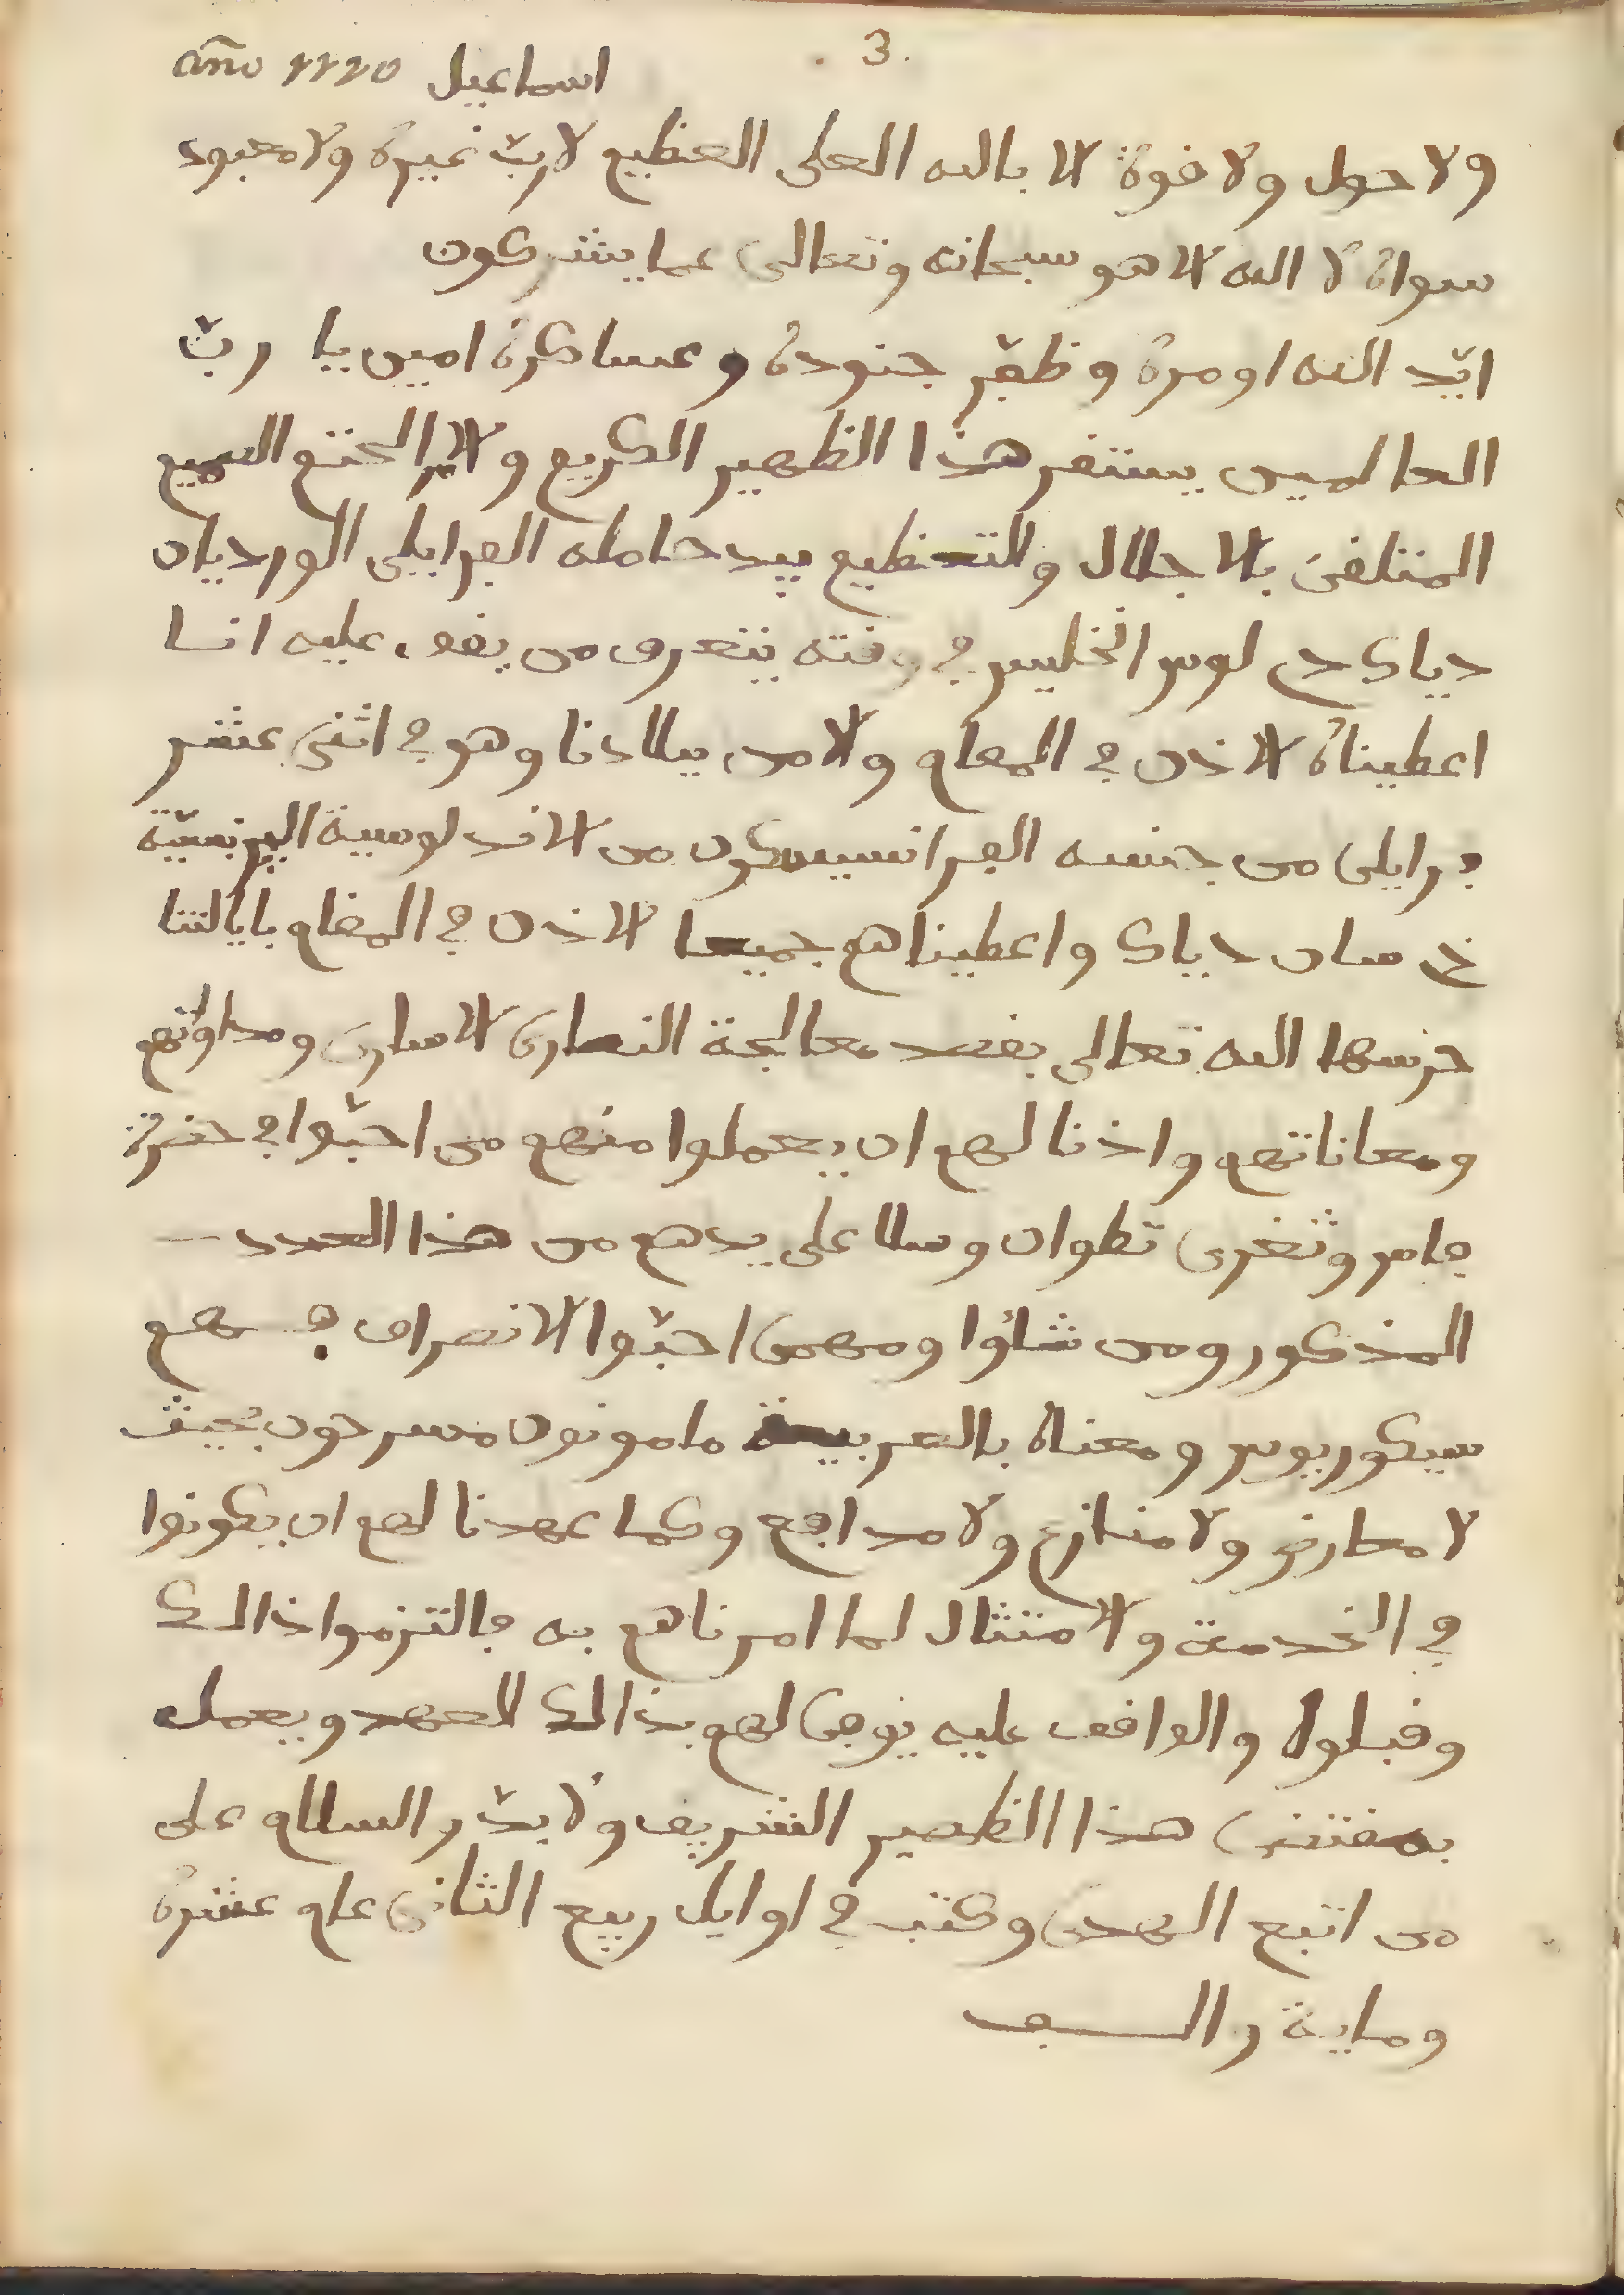 3.
اسماعيل año 1110
ولا حول ولا قوة الا بالله العلى العظيم لا ربّ غيره ولا معبود
سواه لا اله الا هو سبحانه وتعالى عما يشركون
ايّد الله اومره وظفّر جنوده وعساكره امين يا ربّ
العالمين يستقر هذا الظهير الكريم والامر المحتم الصميم
المتلقى بالاجلال والتعظيم بيد حامله الفرايلى الورديان
دياك د لوس انخليس في وقته يتعرف من يقف عليه اننا
اعطيناه الاذن في المقام والامن ببلادنا وهو في اثنى عشر
فرايلى من جنسه الفرانسيسكون من الاندلوسية البرنسيّة
د سان دياك واعطيناهم جميعا الاذن في المقام بايالتنا
حرسها الله تعالى بقصد معالجة النصارى الاسارى ومداوتهم
ومعاناتهم واذنا لهم ان يعملوا منهم من احبّوا في حضرة
فاس وثغرى تطوان وسلا على يدهم من هذا العدد
المذكور ومن شاؤا ومهمى احبّوا الانصراف فهم
سيكوريوس ومعناه بالعربية مامونون مسرحون بحيث
لا معارض ولا منازع ولا مدافع وكما عهدنا لهم ان يكونوا
في الخدمة والامتثال لما امرناهم به فالتزموا ذالك
وقبلوه والواقف عليه يوفى لهم بذالك العهد ويعمل
بمقتضى هذا الظهير الشريف ولا بدّ والسلام على
من اتبع الهدى وكتب في اوايل ربيع الثانى عام عشرة
وماية والـــف